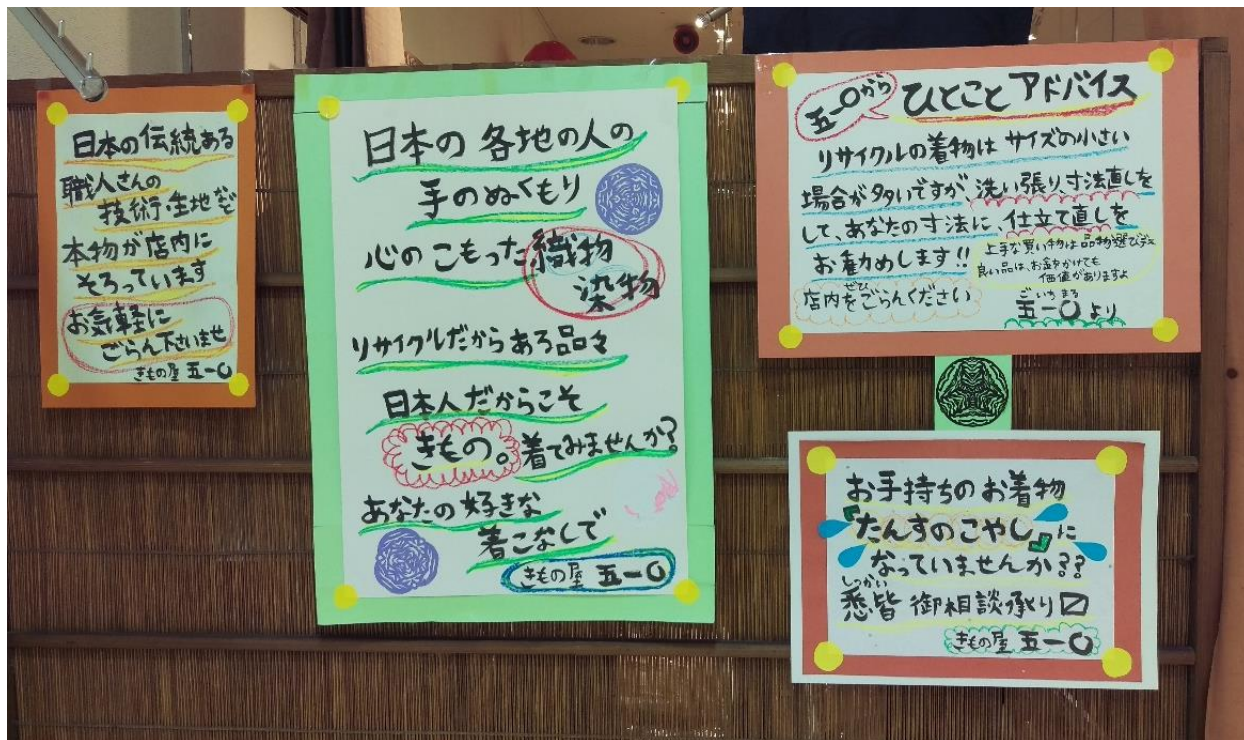 日本の伝統ある
職人さんの
技術・生地など
本物が店内に
そろっています
お気軽に
ごらん下さいませ
きもの屋 五一〇
日本の 各地の人の
手のぬくもり
心のこもった織物
染物
リサイクルだからある品々
日本人だからこそ
きもの。着てみませんか?
あなたの好きな
着こなしで
きもの屋 五一〇
五一〇から ひとことアドバイス
リサイクルの着物は サイズの小さい
場合が多いですが、洗い張り、寸法直しを
して、あなたの寸法に、仕立て直しを
お勧めします!!
上手な買い物は品物選び
良い品は、お金をかけても
価値がありますよ
ぜひ
店内をごらんください
ごいちまる
五一〇より
お手持ちのお着物
『たんすのこやし』に
なっていませんか??
しっかい
悉皆 御相談承り〼
きもの屋 五一〇